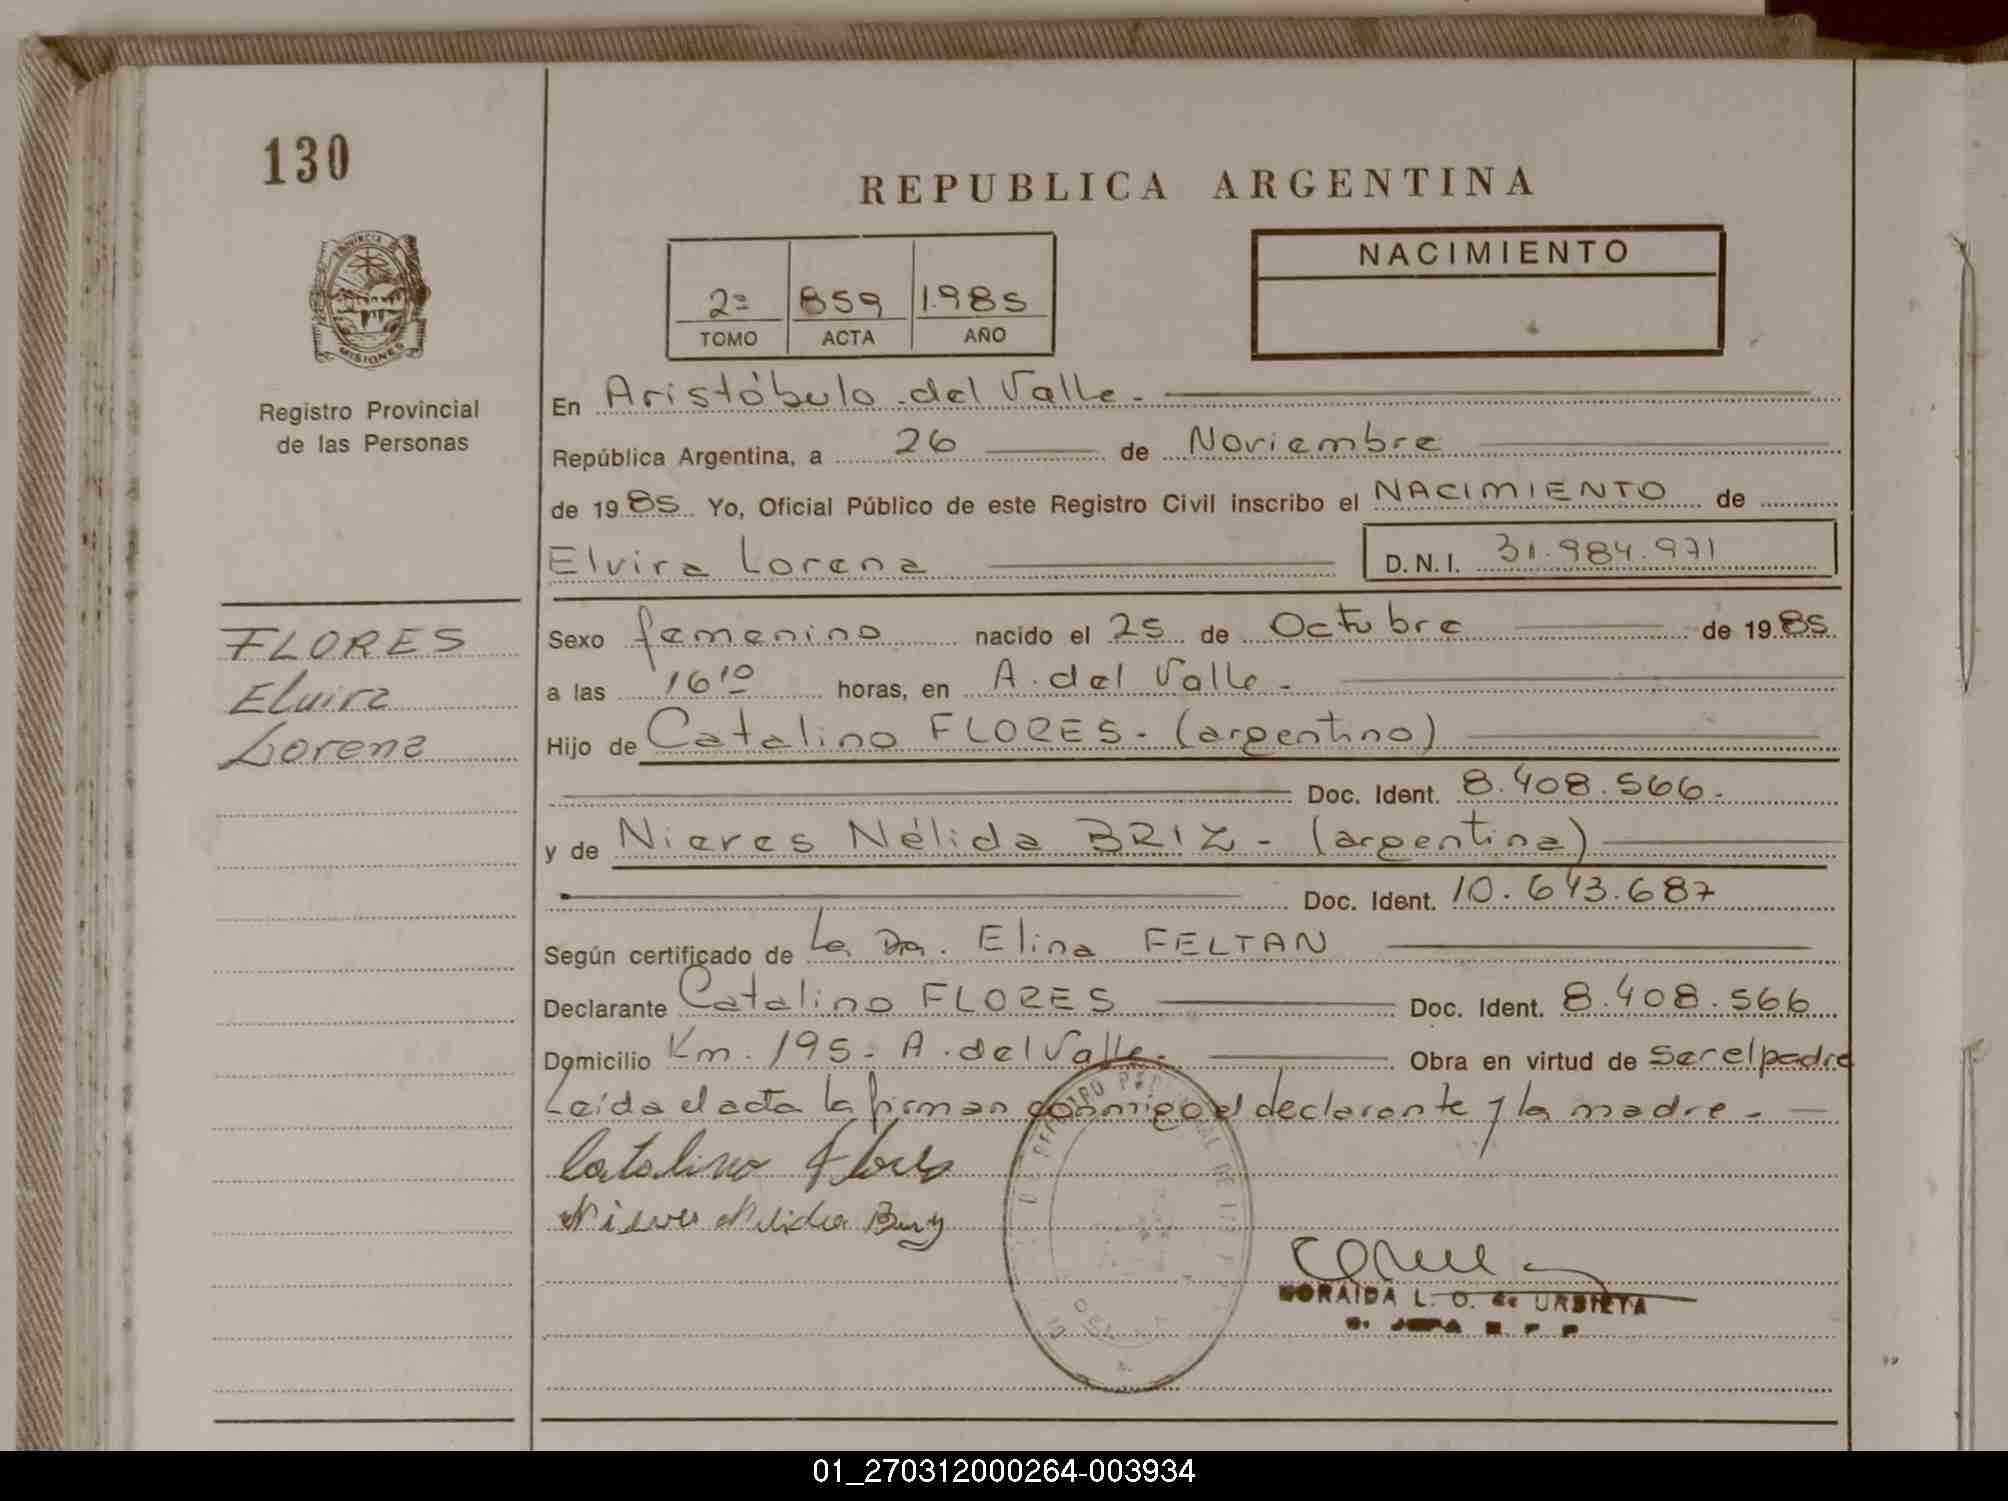 130
REPUBLICA ARGENTINA
PROVINCIA DE
MISIONES
Registro Provincial
de las Personas
2º 859 1.985
TOMO ACTA AÑO
NACIMIENTO
En Aristóbulo del Valle.-
República Argentina, a 26 de Noviembre
de 1985 Yo, Oficial Público de este Registro Civil inscribo el NACIMIENTO de
Elvira Lorena D.N.I. 31.984.971
FLORES
Elvira
Lorena
Sexo femenino nacido el 25 de Octubre de 1985
a las 16¹⁰ horas, en A. del Valle.-
Hijo de Catalino FLORES.- (argentino)
Doc. Ident. 8.408.566.-
y de Nieves Nélida BRIZ.- (argentina)
Doc. Ident. 10.643.687
Según certificado de la Dra. Elina FELTAN
Declarante Catalino FLORES Doc. Ident. 8.408.566
Domicilio Km. 195.- A. del Valle.- Obra en virtud de ser el padre
Leída el acta la firman conmigo el declarante y la madre.-
Catalino Flores
Nieves Nelida
REGISTRO
L. O. de URBIETA
01_270312000264-003934